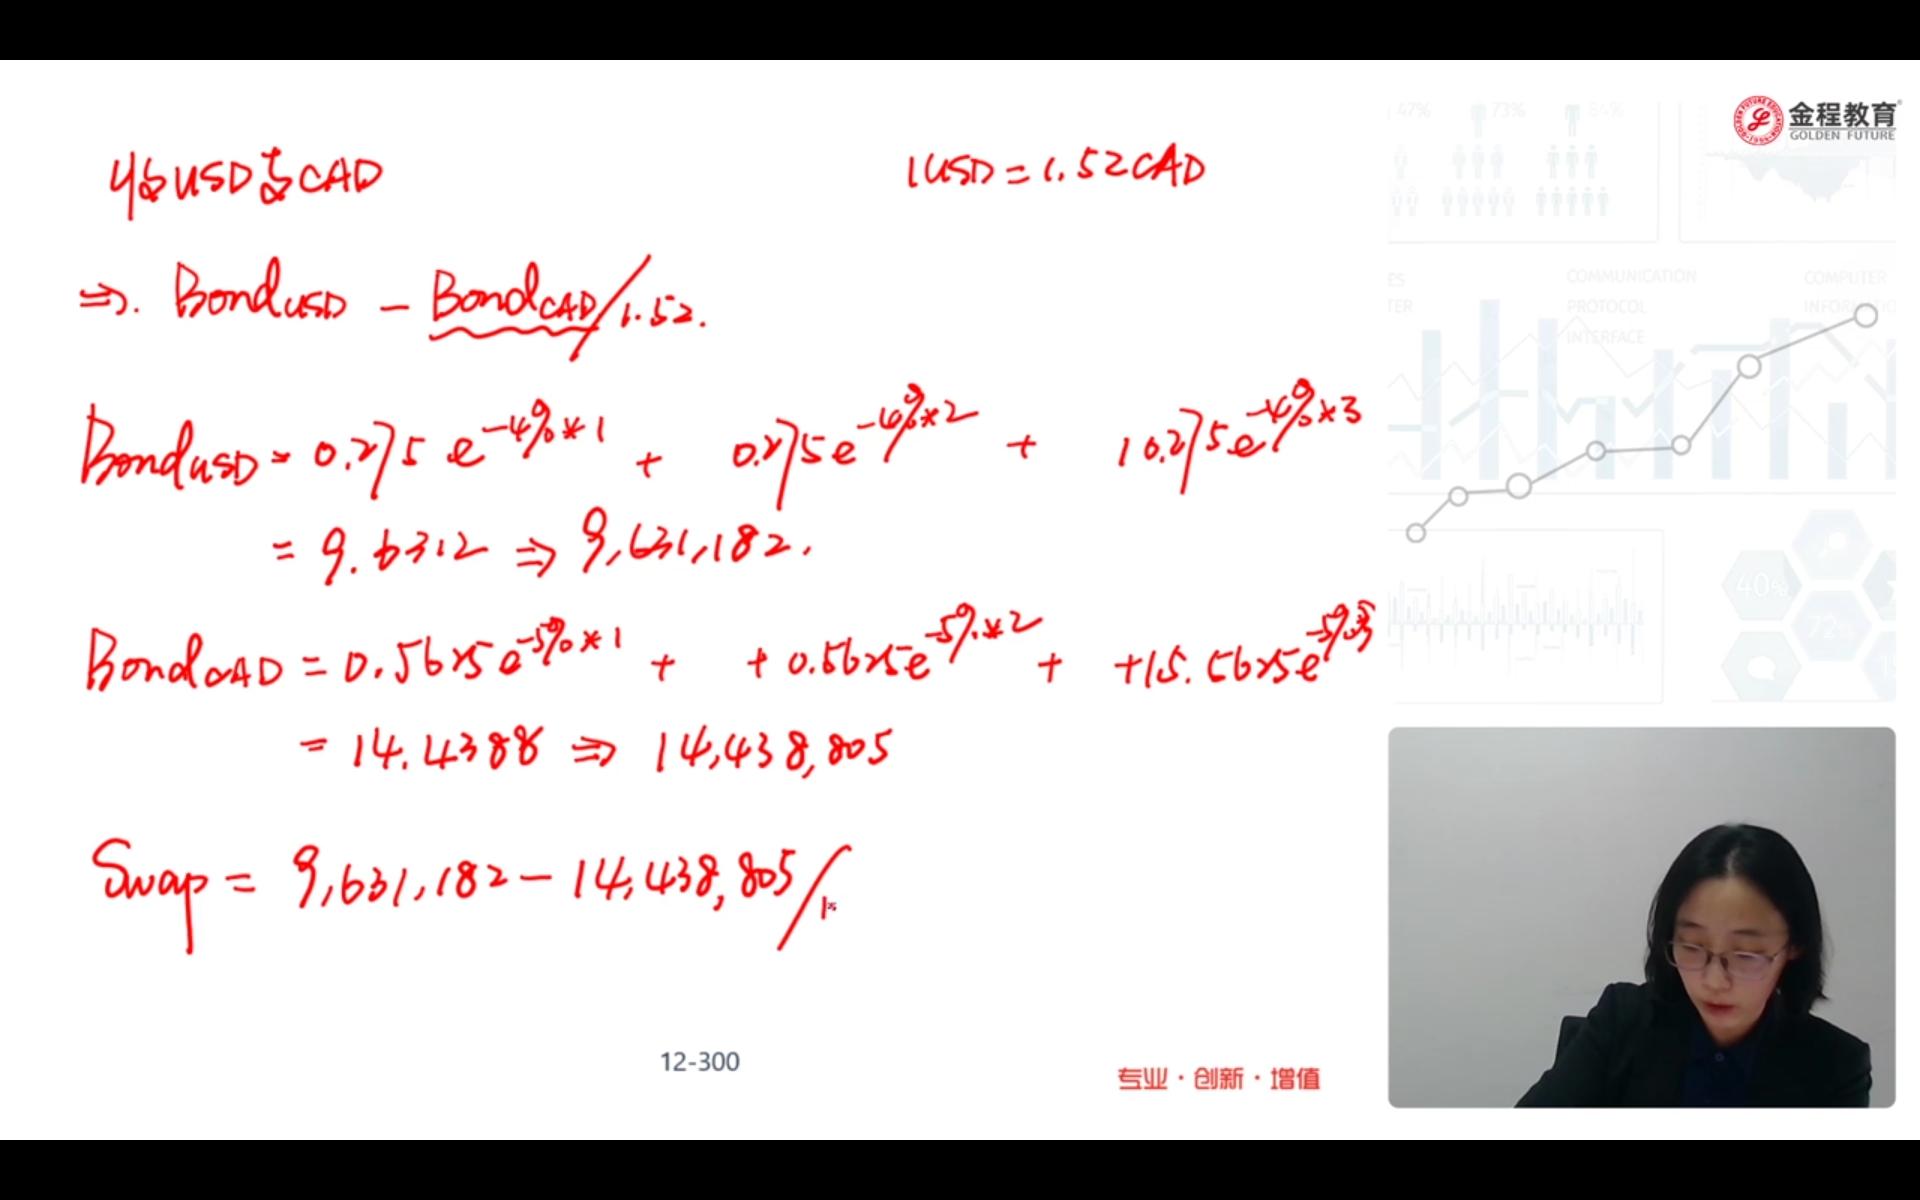 金程教育
GOLDEN FUTURE
收USD支CAD
1USD = 1.52CAD
⇒. BondUSD - BondCAD/1.52.
BondUSD = 0.275 e^-4%*1 + 0.275e^-4%*2 + 10.275e^-4%*3
= 9.6312 ⇒ 9,631,182.
BondCAD = 0.5625e^-5%*1 + + 0.5625e^-5%*2 + +15.5625e^-5%*3
= 14.4388 ⇒ 14,438,805
Swap = 9,631,182 - 14,438,805/1
47% 73% 84%
COMMUNICATION
PROTOCOL
INTERFACE
COMPUTER
40%
72%
12-300
专业·创新·增值